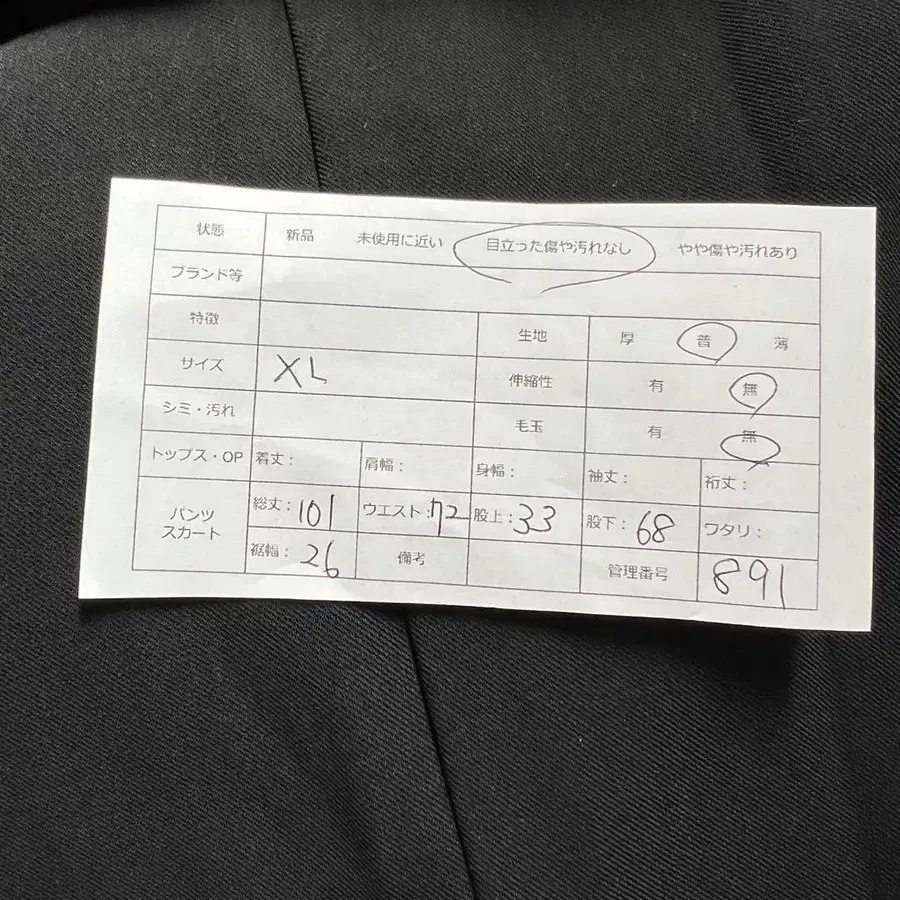 状態 新品 未使用に近い 目立った傷や汚れなし やや傷や汚れあり
ブランド等
特徴 生地 厚 普 薄
サイズ XL 伸縮性 有 無
シミ・汚れ 毛玉 有 無
トップス・OP 着丈： 肩幅： 身幅： 袖丈： 裄丈：
パンツ スカート 総丈：101 ウエスト：72 股上：33 股下：68 ワタリ：
裾幅：26 備考 管理番号 891